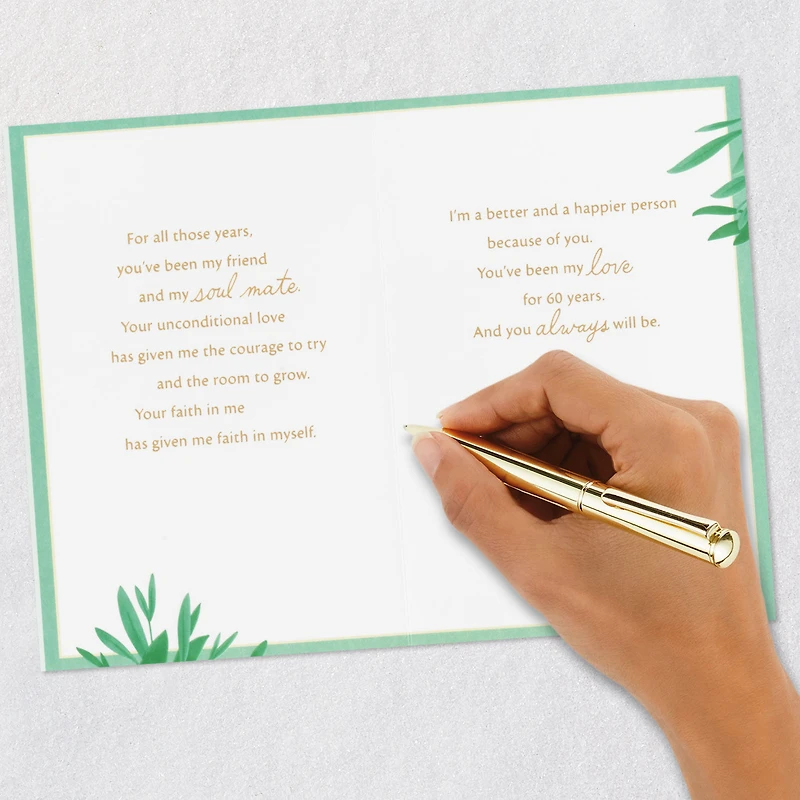 For all those years,
you've been my friend
and my soul mate.
Your unconditional love
has given me the courage to try
and the room to grow.
Your faith in me
has given me faith in myself.
I'm a better and a happier person
because of you.
You've been my love
for 60 years.
And you always will be.